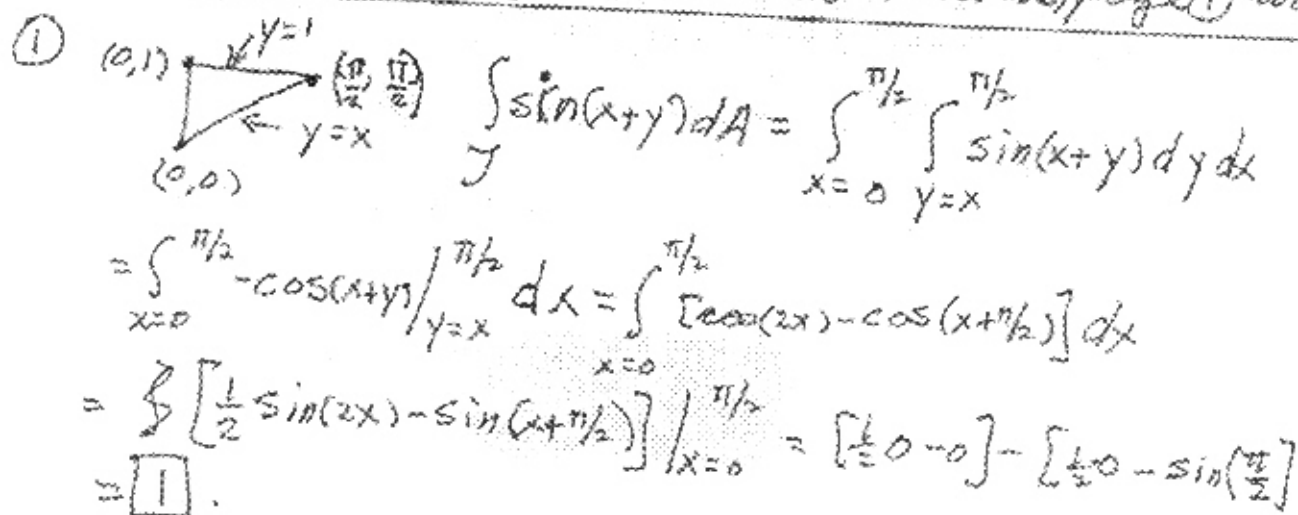 ① (0,1) y=1 (π/2, π/2) ← y=x (0,0) ∫_T sin(x+y)dA = ∫_{x=0}^{π/2} ∫_{y=x}^{π/2} sin(x+y)dydx
= ∫_{x=0}^{π/2} -cos(x+y)|_{y=x}^{π/2} dx = ∫_{x=0}^{π/2} [cos(2x)-cos(x+π/2)] dx
= [1/2 sin(2x)-sin(x+π/2)]|_{x=0}^{π/2} = [1/2 0-0]-[1/2 0-sin(π/2)]
= 1.